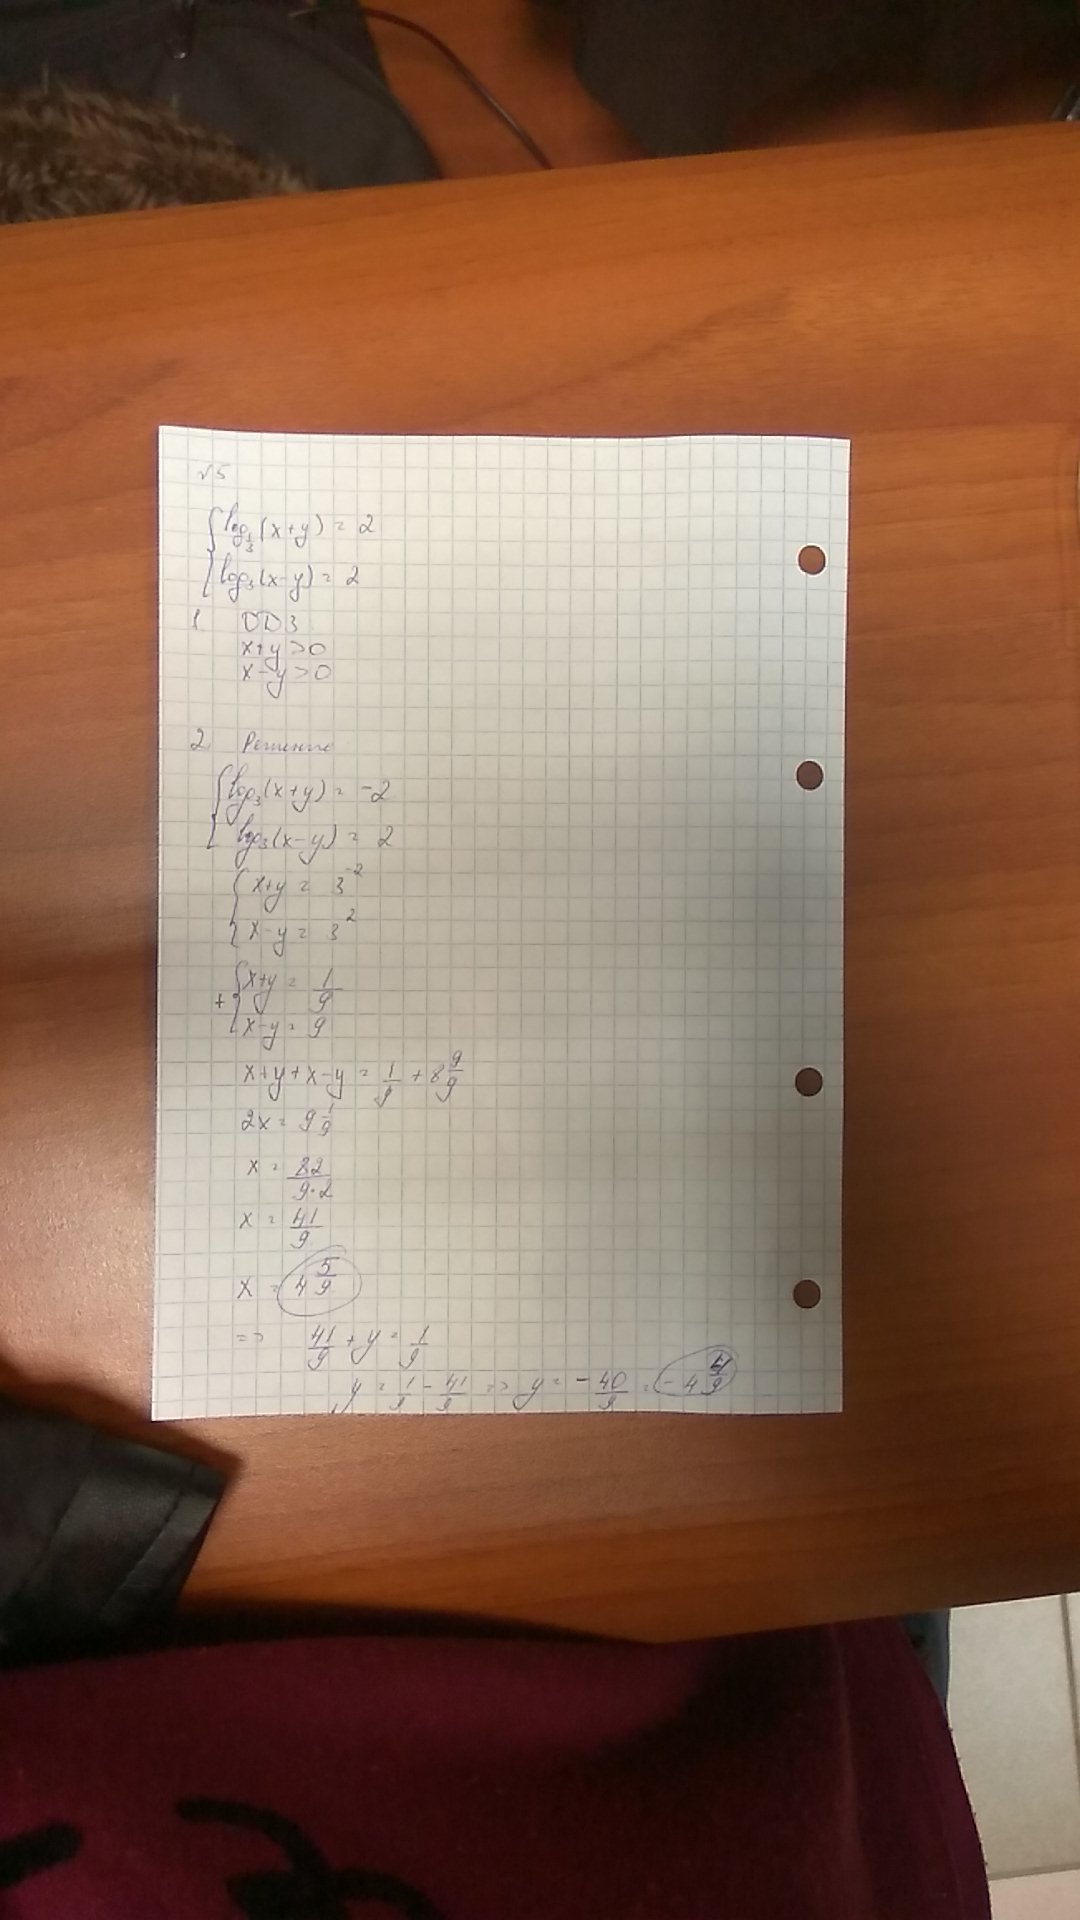 √5
{ log_{1/3}(x+y) = 2
{ log₃(x-y) = 2
1. ОДЗ
x+y>0
x-y>0
2 Решение
{ log₃(x+y) = -2
{ log₃(x-y) = 2
{ x+y = 3⁻²
{ x-y = 3²
+ { x+y = 1/9
{ x-y = 9
x+y+x-y = 1/9 + 8 9/9
2x = 9 1/9
x = 82/9·2
x = 41/9
x = 4 5/9
=> 41/9 + y = 1/9
y = 1/9 - 41/9 => y = -40/9 = -4 4/9